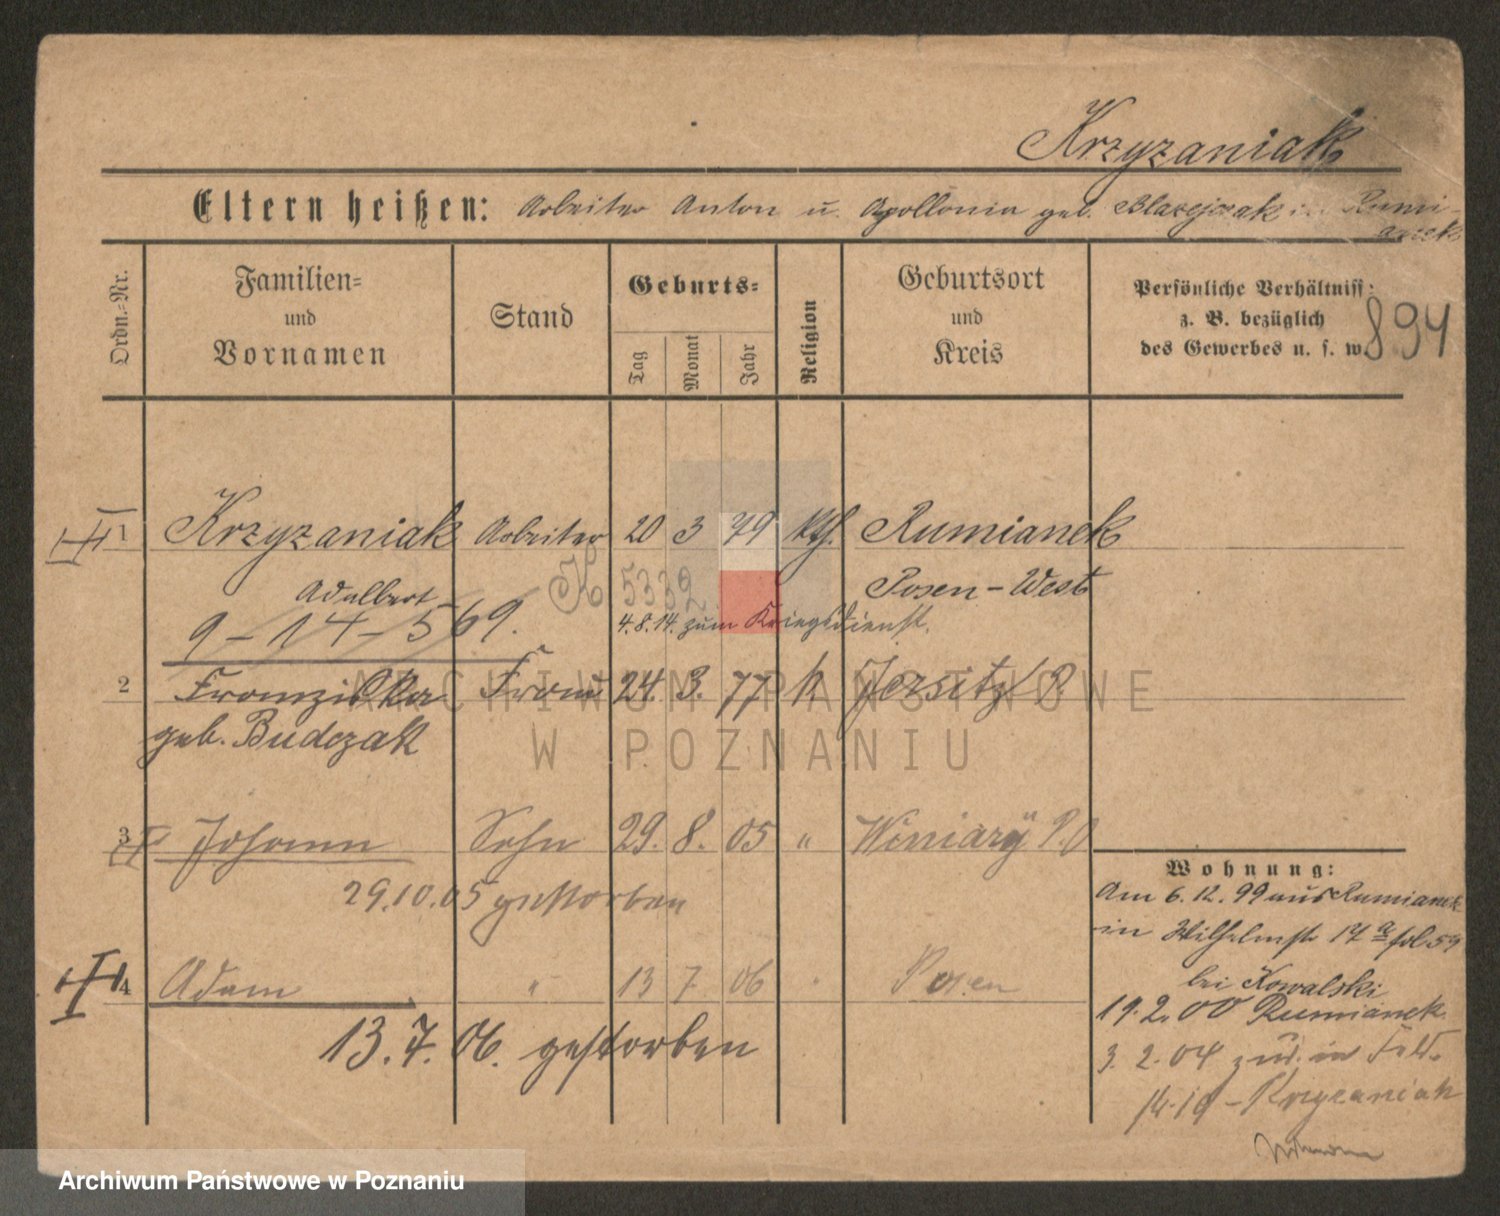 Krzyzaniak
Eltern heißen: Arbeiter Anton u. Apollonia geb. Blazejczak in Rumi-
anek
Ordn.-Nr.
Familien-
und
Vornamen
Stand
Geburts-
Tag
Monat
Jahr
Religion
Geburtsort
und
Kreis
Persönliche Verhältniss:
z. B. bezüglich
des Gewerbes u. s. w.
894
1 Krzyzaniak Arbeiter 20 3 79 kth. Rumianek
Adalbert Posen-West
K 5332
9-14-569.
4.8.14. zum Kriegsdienst.
2 Franziska Frau 24. 3. 77 k. Jersitz P.
geb. Budczak
ARCHIWUM PAŃSTWOWE
W POZNANIU
3 Johann Sohn 29. 8. 05 " Winiary P.O
29.10.05 gestorben
4 Adam " 13 7 06 " Posen
13.7.06. gestorben
Wohnung:
Am 6.12.99 aus Rumianek
in Wilhelmstr 17 a fol 59
bei Kowalski
19.2.00 Rumianek
3.2.04 zur. in
14.19 - Krzyzaniak
Archiwum Państwowe w Poznaniu